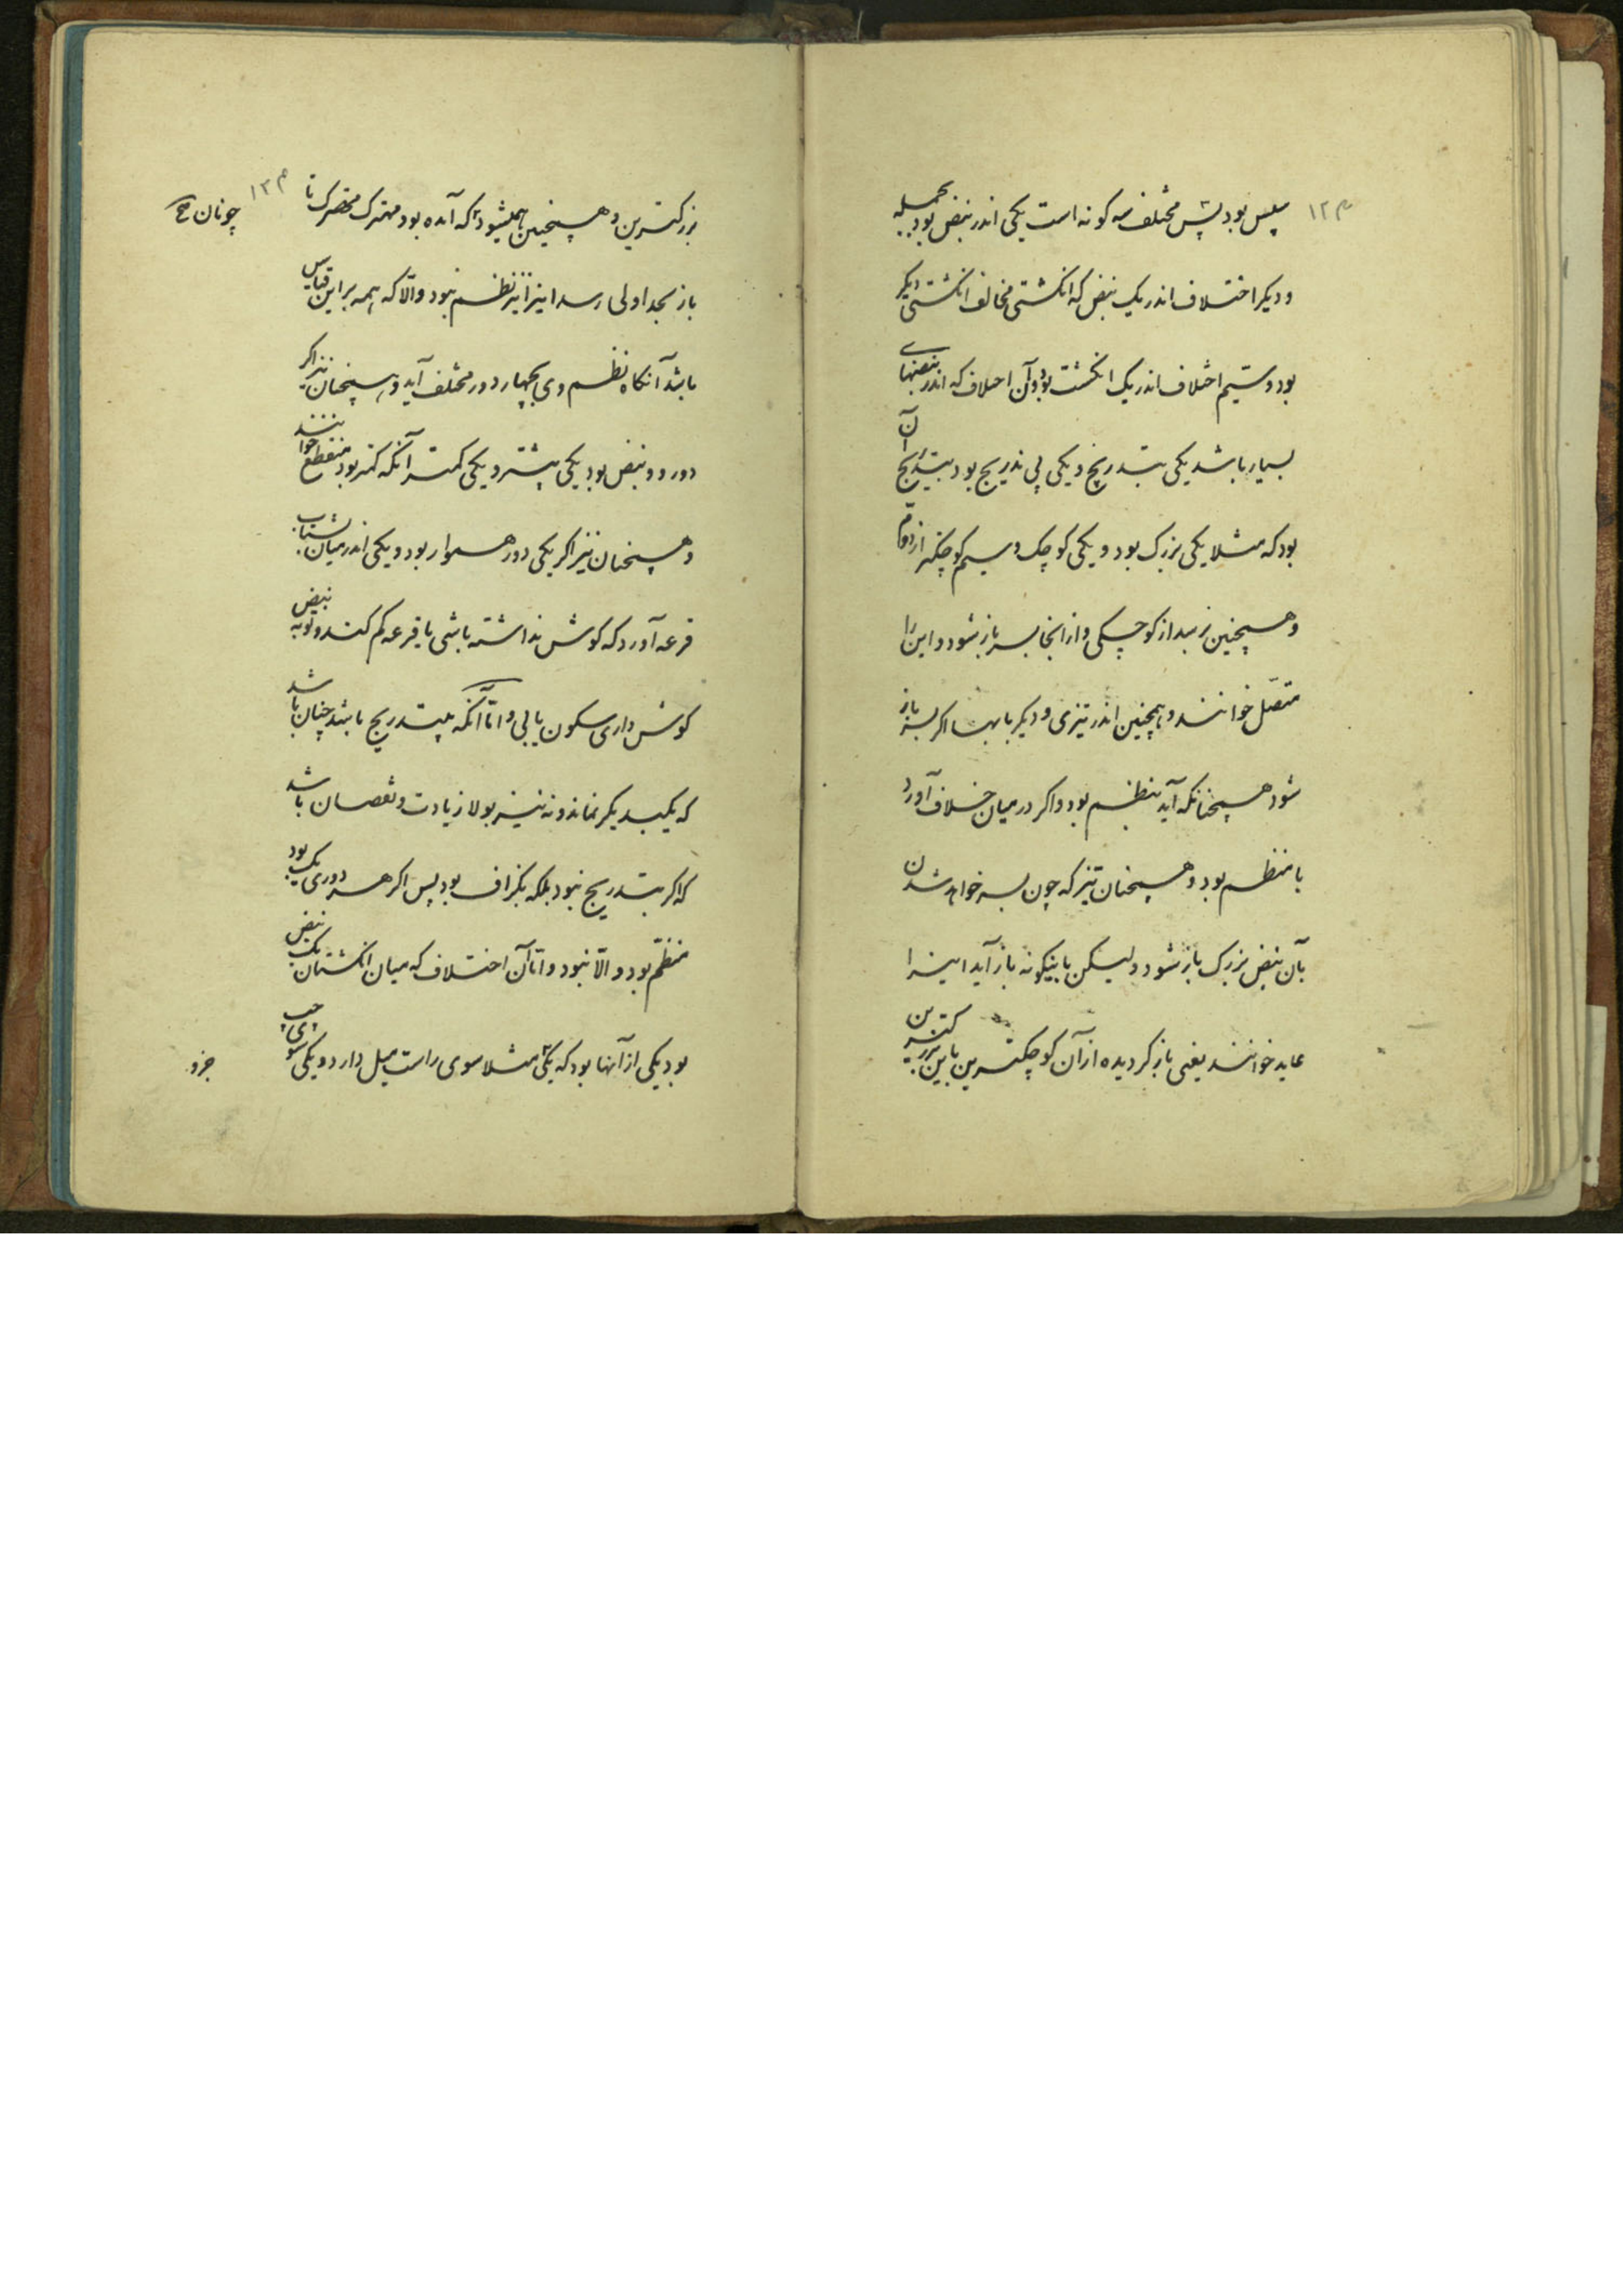 م ۱۲
سلیس بود پس مختلف سه کونه است یکی اندر نبض بود بجمله
و دیکر اختلاف اندر یک نبض که انکشتی مخالف انکشتی دیکر
بود و سیم اختلاف اندر یک انکشت بود و آن اختلاف که اندر نبضهای
بسیار باشد یکی بتدریج و یکی بی تدریج بود آن بتدریج
بود که مثلا یکی بزرک بود و یکی کوچک و سیم کوچکتر از دوم
و همچنین برسد از کوچکی و از آنجا بسر باز شود و این را
متصل خوانند و همچنین اندر تیزی و دیکر بابها اکر بسر باز
شود همچنانکه آید بنظم بود و اکر در میان خلاف آورد
با منظم بود و همچنان نیز که چون بسر خواهد شدن
بآن نبض بزرک باز شود ولیکن باینکونه باز آید اینرا
عاید خوانند یعنی باز کردیده از آن کوچکترین باین بزرکترین
م ۱۳
بزرکترین و همچنین همیشود که آمده بود مهترک مهترک تا
چونان
باز بحد اولی رسد اینرا نیز نظم نبود والا که همه بر این قیاس
باشد آنکاه نظم وی بچهار دور مختلف آید و همچنان نیز اکر
دور دو نبض بود یکی بیشتر و یکی کمتر آنکه کمتر بود منقطع خوانند
و همچنان نیز اکر یکی دور هموار بود و یکی اندر میان بشتاب
قرعه آورد که کوش نداشته باشی یا قرعه کم کند و نوبه نبض
کوش داری سکون یابی و اما آنکه بتدریج باشد چنان باشد
که یکبدیکر نماند و نه نیز بولا زیادت و نقصان باشد
که اکر بتدریج نبود بلکه بکزاف بود پس اکر هر دوری یک بود
منظم بود و الا نبود و اما آن اختلاف که میان انکشتان یک نبض
بود یکی از آنها بود که یکی مثلا سوی راست میل دارد و یکی سوی چپ
جزو